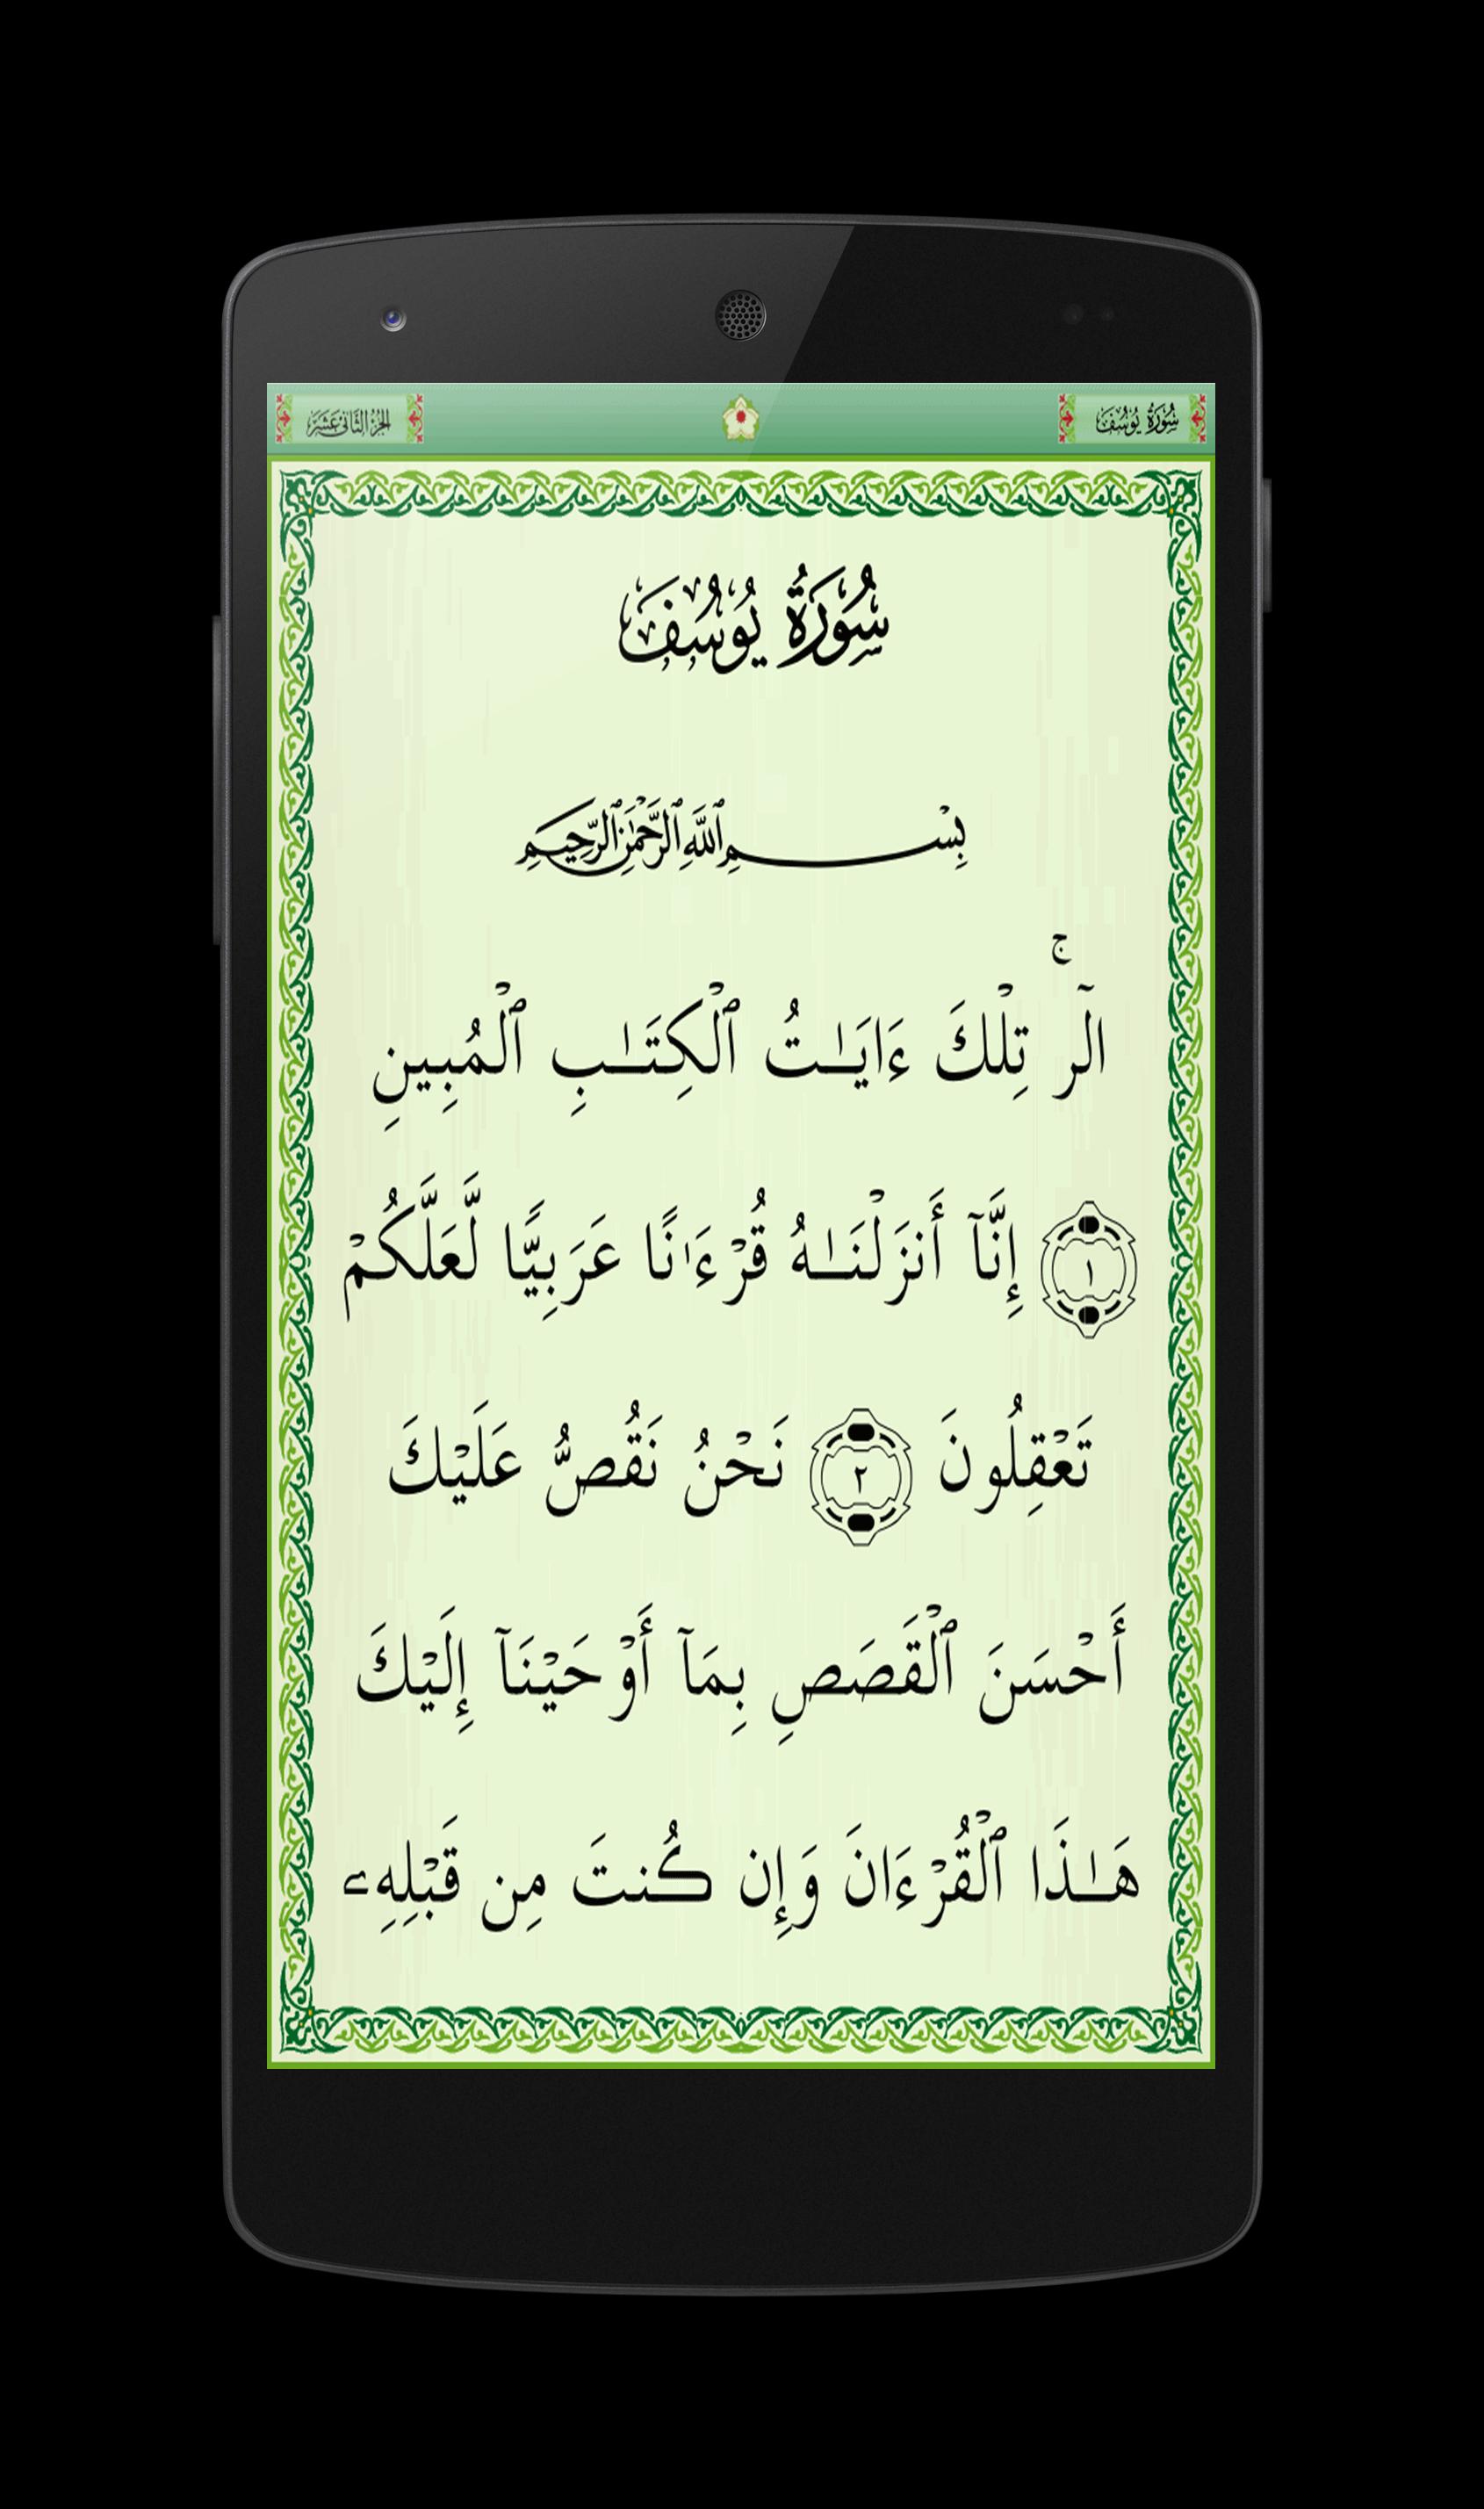 سُورَةُ يُوسُفَ
الجُزْءُ الثَّانِي عَشَرَ
سُورَةُ يُوسُفَ
بِسْمِ ٱللَّهِ ٱلرَّحْمَٰنِ ٱلرَّحِيمِ
الٓرۚ تِلْكَ ءَايَـٰتُ ٱلْكِتَـٰبِ ٱلْمُبِينِ
١ إِنَّآ أَنزَلْنَـٰهُ قُرْءَٰنًا عَرَبِيًّا لَّعَلَّكُمْ
تَعْقِلُونَ ٢ نَحْنُ نَقُصُّ عَلَيْكَ
أَحْسَنَ ٱلْقَصَصِ بِمَآ أَوْحَيْنَآ إِلَيْكَ
هَـٰذَا ٱلْقُرْءَانَ وَإِن كُنتَ مِن قَبْلِهِۦ